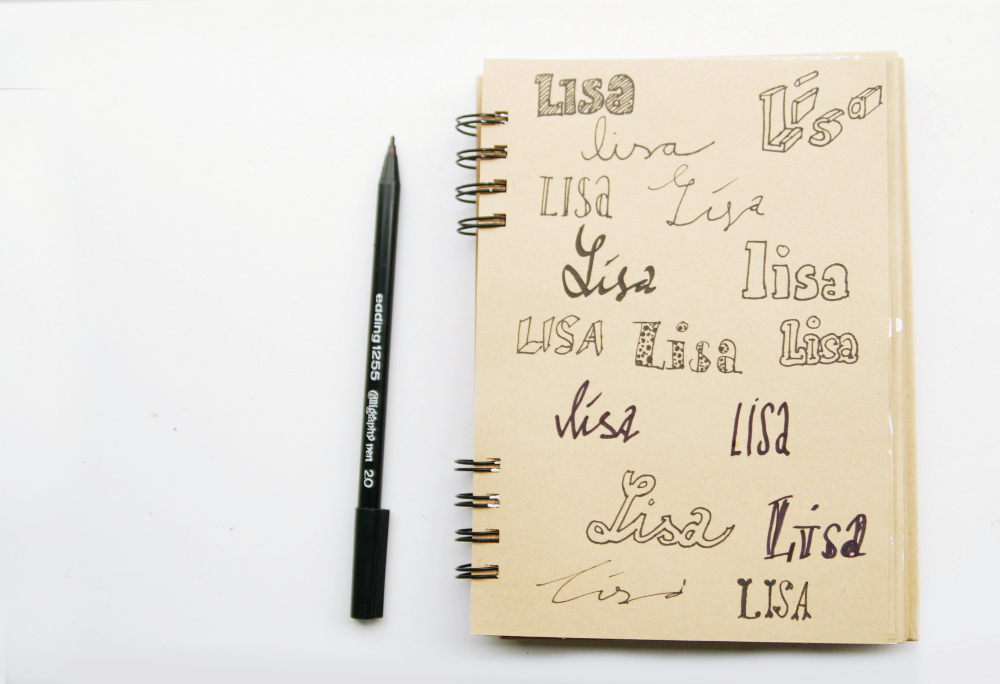 edding 1255 calligraphy pen 2.0
Lisa
Lisa
lisa
LISa
Lisa
Lisa
lisa
LISA
Lisa
Lisa
lisa
lISa
Lisa
Lisa
Lisa
LISA